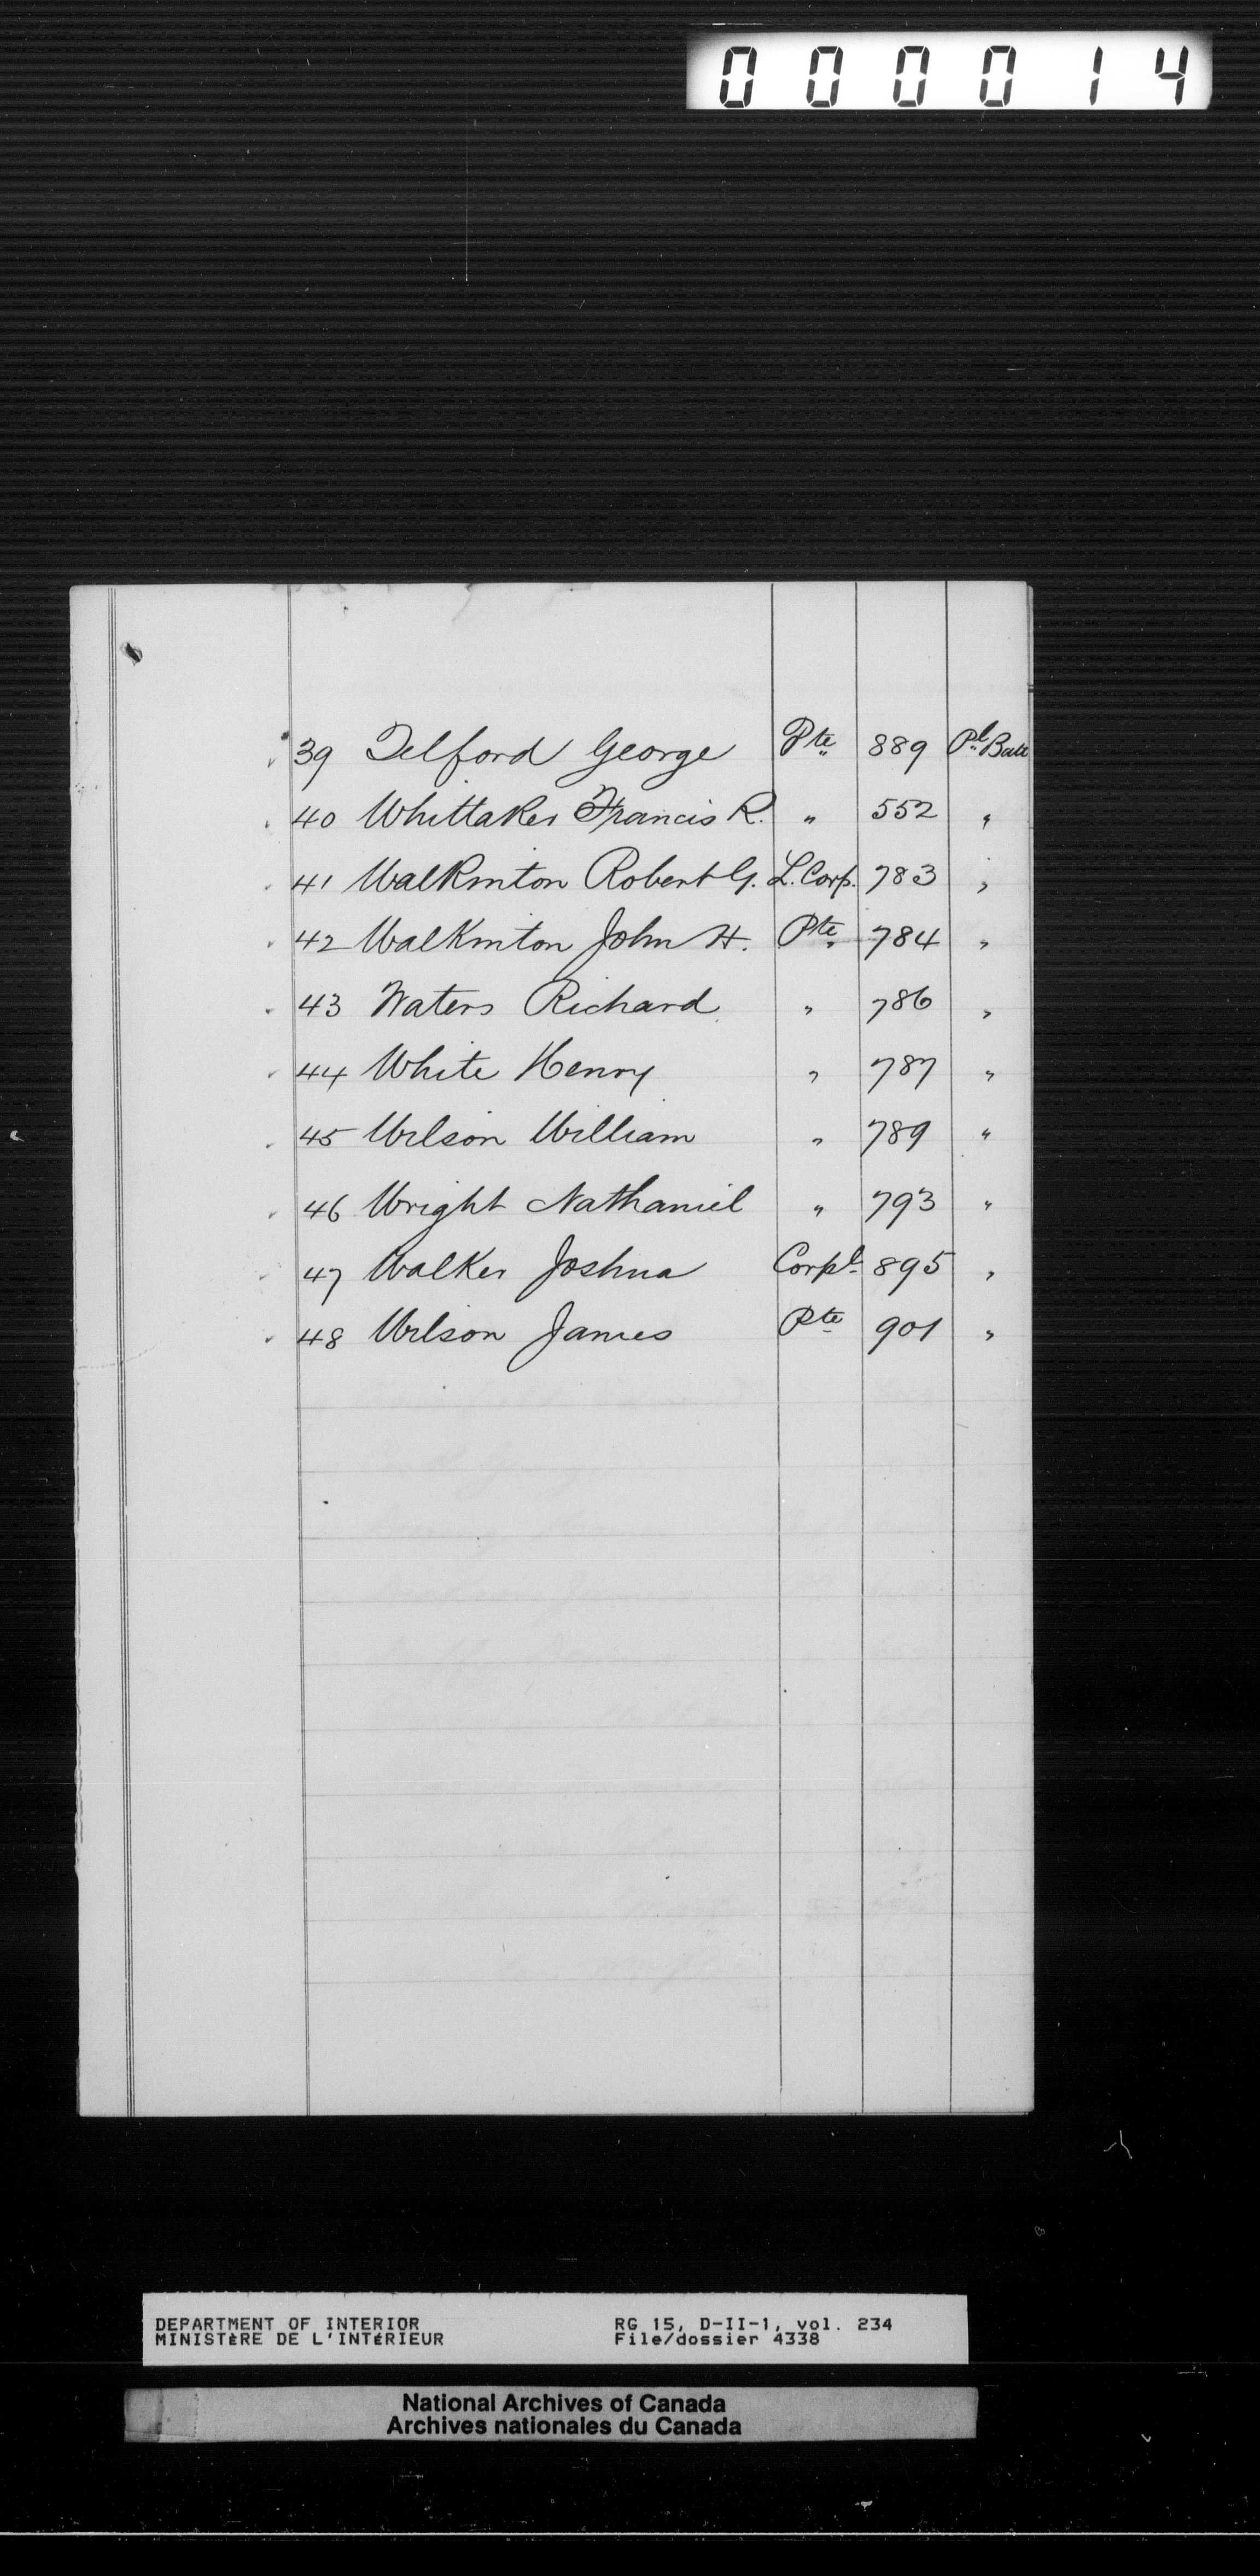 000014
39 Telford George Pte 889 Pl. Batt
40 Whittaker Francis R. " 552 "
41 Walkinton Robert G. L. Corp. 783 "
42 Walkinton John H. Pte 784 "
43 Waters Richard " 786 "
44 White Henry " 787 "
45 Wilson William " 789 "
46 Wright Nathaniel " 793 "
47 Walker Joshua Corpl. 895 "
48 Wilson James Pte 901 "
DEPARTMENT OF INTERIOR RG 15, D-II-1, vol. 234
MINISTÈRE DE L'INTÉRIEUR File/dossier 4338
National Archives of Canada
Archives nationales du Canada